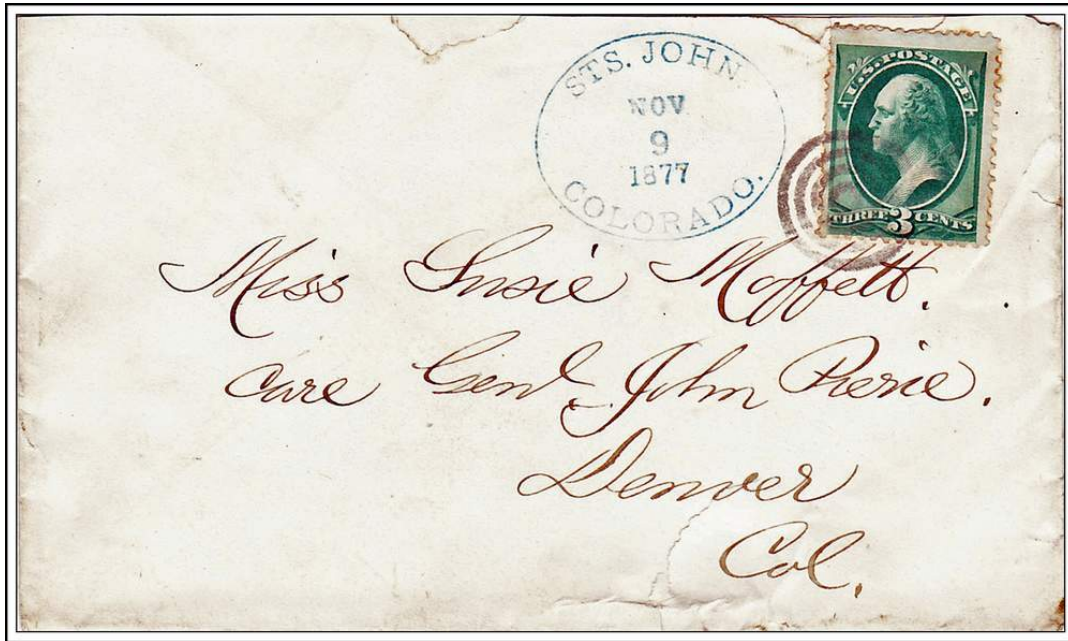 STS. JOHN
NOV
9
1877
COLORADO.
U.S. POSTAGE
THREE 3 CENTS
Miss Susie Moffett.
Care Genl. John Pierie.
Denver
Col.